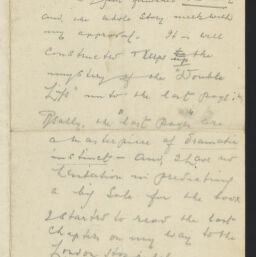 and, the whole story meets with
my approval. It is well
constructed & keeps up the
mystery of the "Double
Life" unto the last page.
Really, the "last pages" are
a masterpiece of dramatic
instinct — and, I have no
hesitation in predicting
a big sale for the book
I started to read the last
chapters on my way to the
London